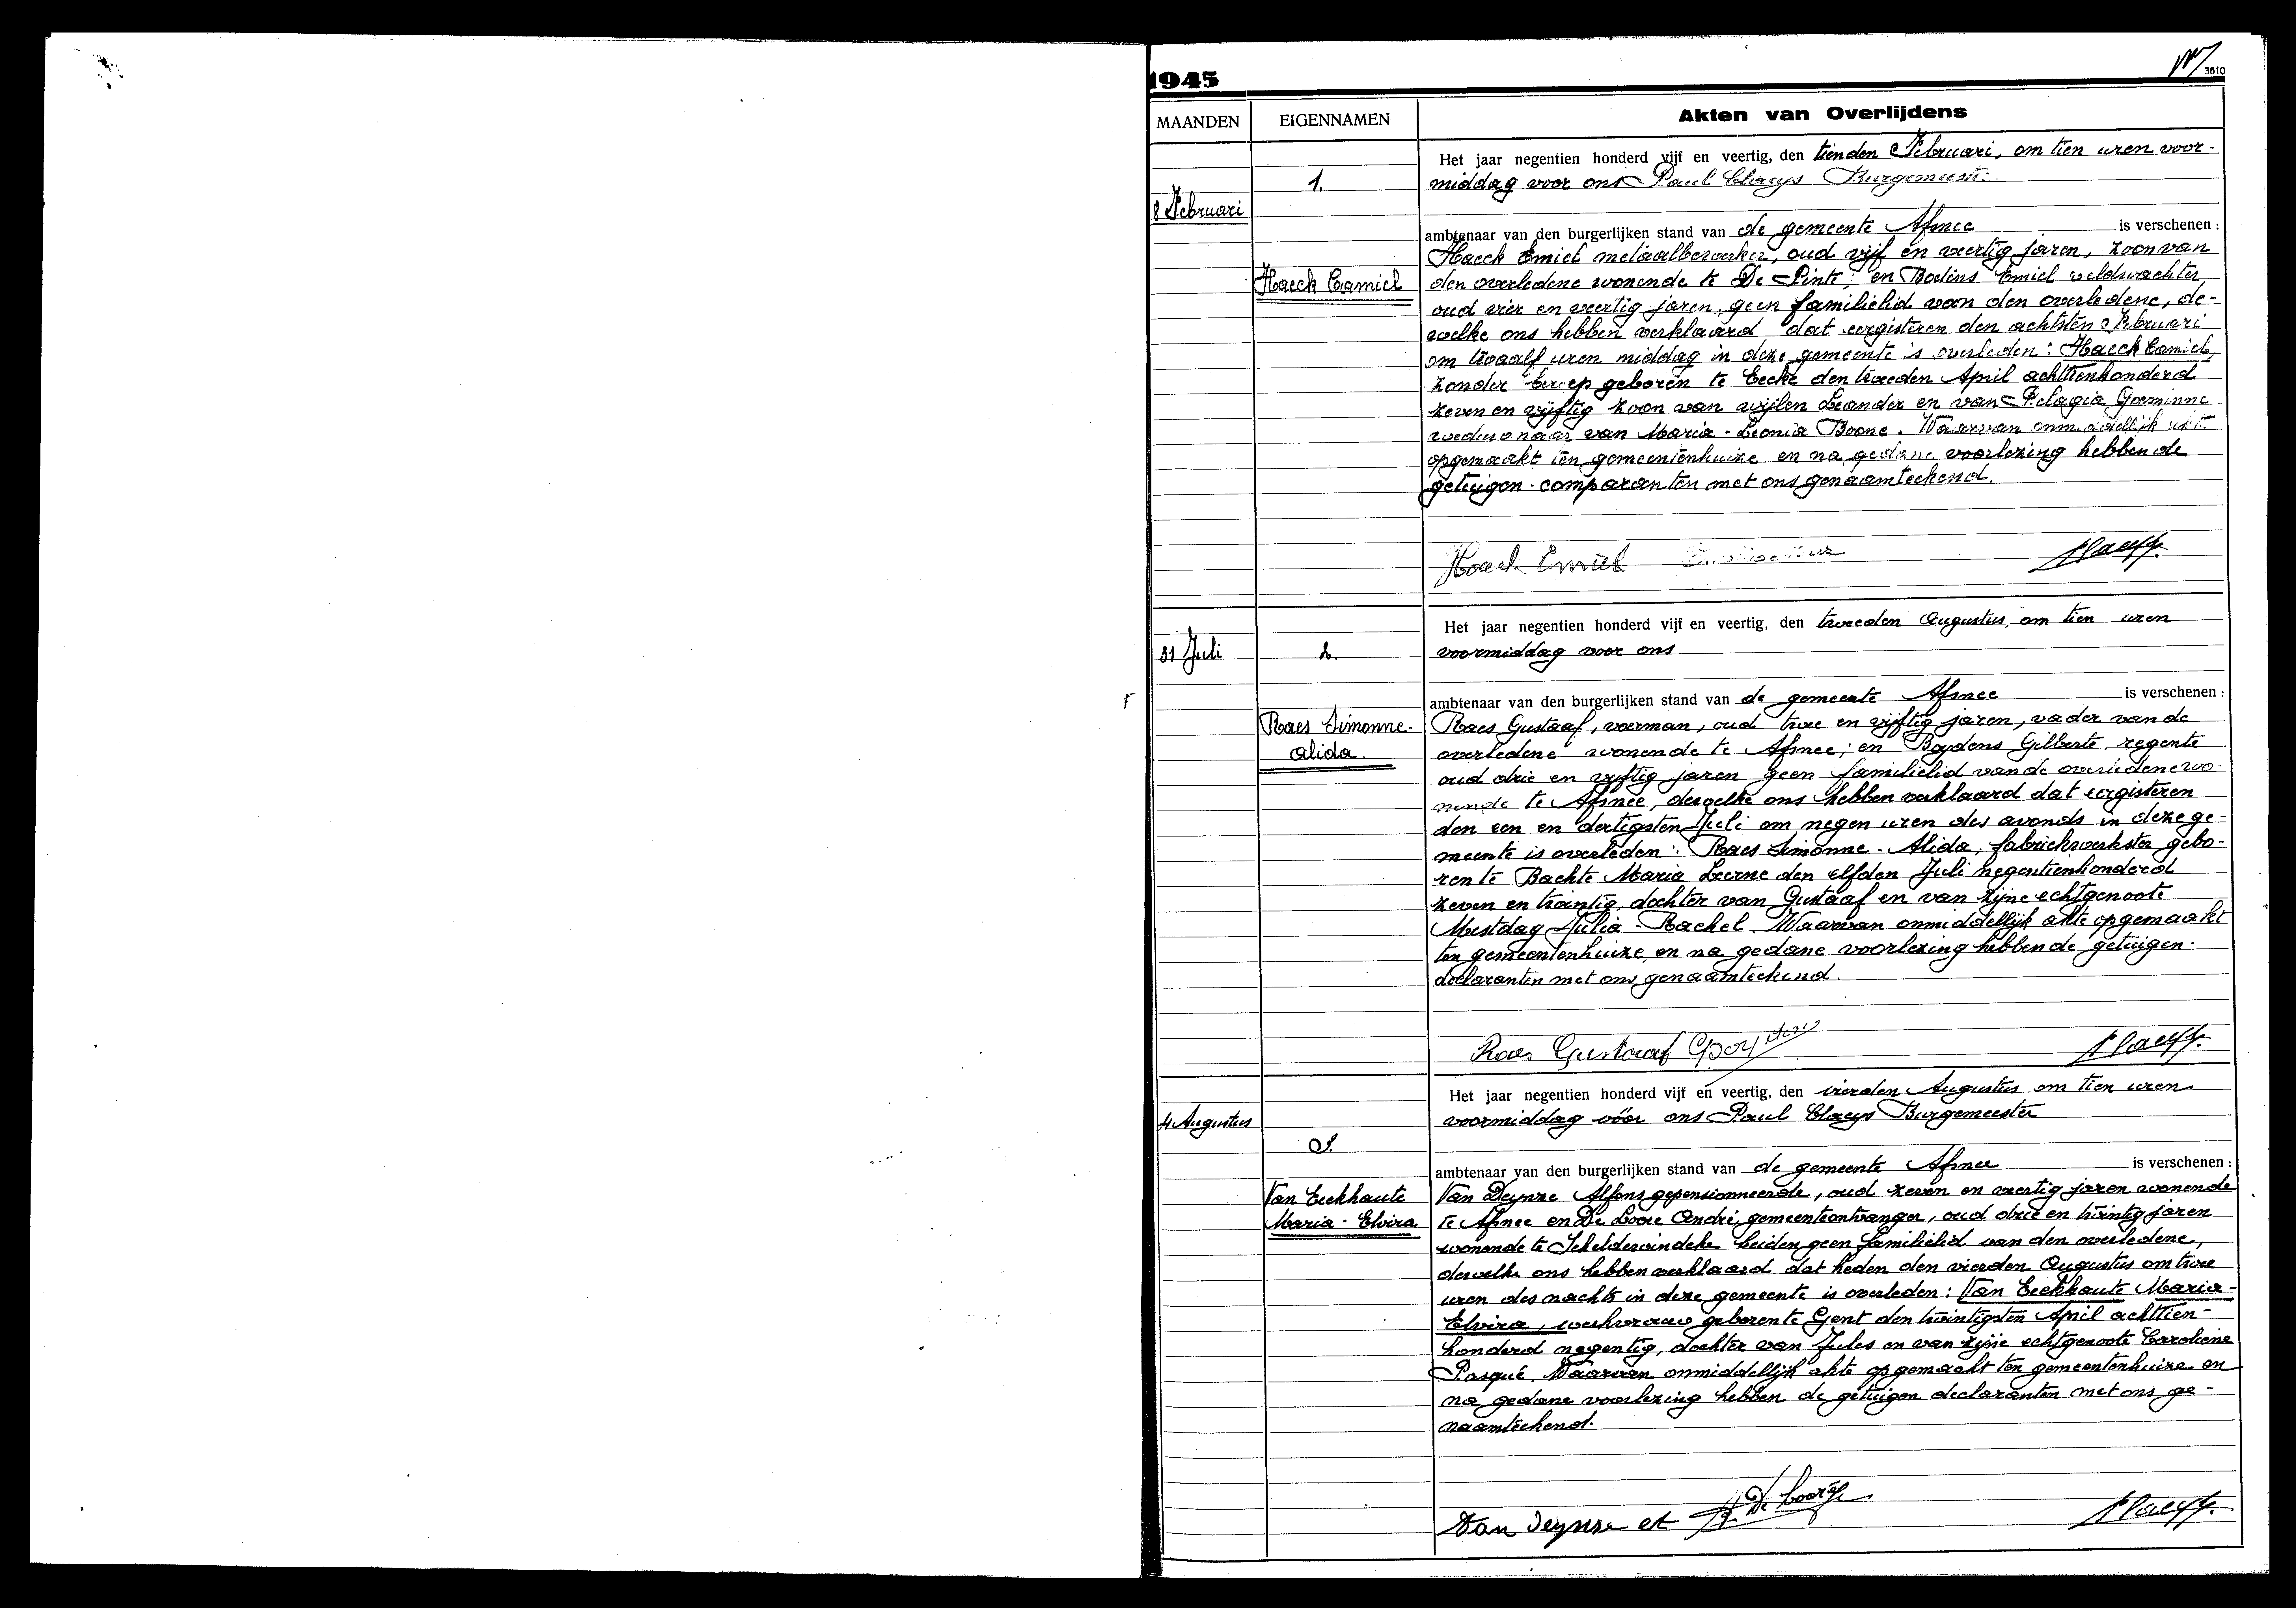 1945
3610
MAANDEN
EIGENNAMEN
Akten van Overlijdens
8 Februari
1.
Haeck Camiel
Het jaar negentien honderd vijf en veertig, den tienden Februari, om tien uren voor-
middag voor ons Paul Claeys
ambtenaar van den burgerlijken stand van de gemeente Afsnee is verschenen :
Haeck Emiel metaalbewerker, oud vijf en veertig jaren, zoon van
den overledene wonende te De Pinte; en Emiel veldwachter
oud vier en veertig jaren, geen familielid van den overledene, de-
welke ons hebben verklaard dat eergisteren den achtsten Februari
om twaalf uren middag in deze gemeente is overleden : Haeck Camiel,
zonder beroep geboren te Eecke den tweeden April achttienhonderd
zeven en vijftig zoon van wijlen Leander en van Pelagia Goeminne
weduwnaar van Maria - Leonia Boone. Waarvan onmiddellijk akte
opgemaakt ten gemeentenhuize en na gedane voorlezing hebben de
getuigen - comparanten met ons genaamteekend.
Haeck Emiel
31 Juli
2.
Raes Simonne-
Alida.
Het jaar negentien honderd vijf en veertig, den tweeden Augustus, om tien uren
voormiddag voor ons
ambtenaar van den burgerlijken stand van de gemeente Afsnee is verschenen :
Raes Gustaaf, voerman, oud twee en vijftig jaren, vader van de
overledene wonende te Afsnee; en Boydens Gilberte, regente
oud drie en vijftig jaren geen familielid van de overledene wo-
nende te Afsnee, dewelke ons hebben verklaard dat eergisteren
den een en dertigsten Juli om negen uren des avonds in deze ge-
meente is overleden : Raes Simonne - Alida, fabriekwerkster gebo-
ren te Bachte Maria Leerne den elfden Juli negentienhonderd
zeven en twintig, dochter van Gustaaf en van zijne echtgenoote
Mestdag Julia - Rachel. Waarvan onmiddellijk akte opgemaakt
ten gemeentenhuize en na gedane voorlezing hebben de getuigen-
declaranten met ons genaamteekend.
Raes Gustaaf
4 Augustus
3.
Van Eeckhaute
Maria - Elvira
Het jaar negentien honderd vijf en veertig, den vierden Augustus om tien uren
voormiddag vóór ons Paul Claeys Burgemeester
ambtenaar van den burgerlijken stand van de gemeente Afsnee is verschenen :
Van Deynze Alfons gepensionneerde, oud zeven en veertig jaren wonende
te Afsnee en De Loore André, gemeenteontvanger, oud drie en twintig jaren
wonende te Scheldewindeke beiden geen familielid van den overledene,
dewelke ons hebben verklaard dat heden den vierden Augustus om twee
uren des nachts in deze gemeente is overleden : Van Eeckhaute Maria-
Elvira, werkvrouw geboren te Gent den twintigsten April achttien-
honderd negentig, dochter van Jules en van zijne echtgenoote Caroline
Pasqué. Waarvan onmiddellijk akte opgemaakt ten gemeentenhuize en
na gedane voorlezing hebben de getuigen declaranten met ons ge-
naamteekend.
Van Deynze